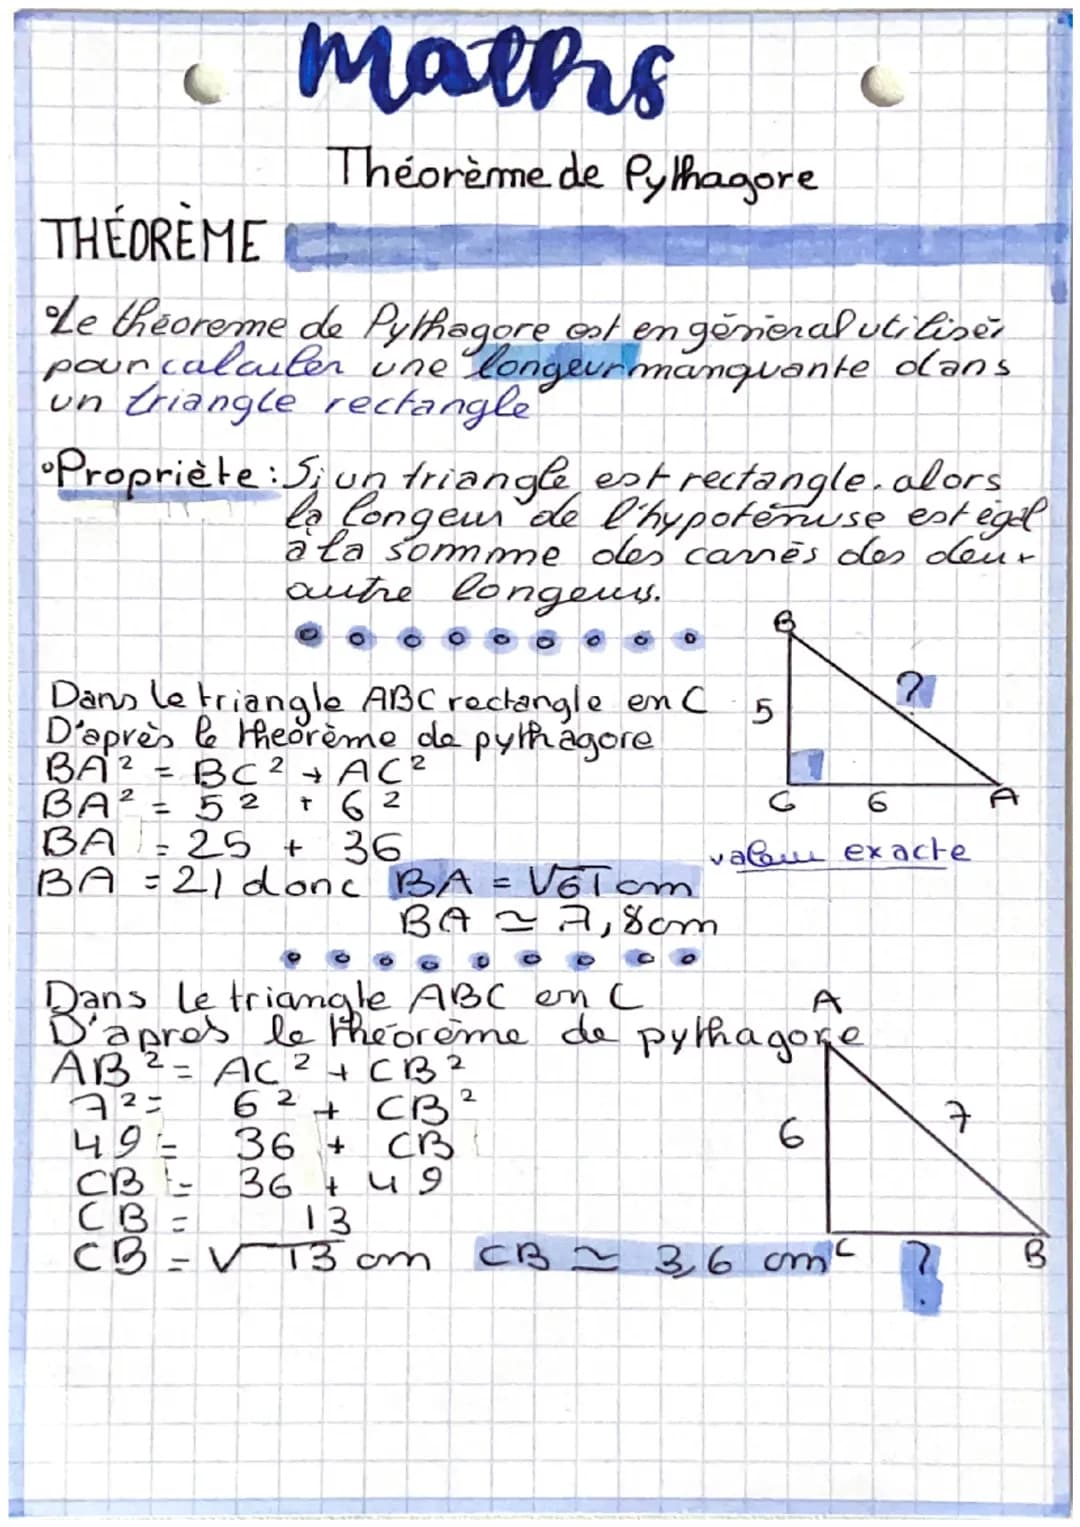 Maths
Théorème de Pythagore
THÉORÈME
Le théoreme de Pythagore est en géneral utiliser
pour calculer une longeur manquante dans
un triangle rectangle
Propriète : Si un triangle est rectangle. alors
la longeur de l'hypoténuse est égal
à la sommme des carrés des deux
autre longeurs.
B
?
5
C 6 A
valeur exacte
Dans le triangle ABC rectangle en C
D'après le theorème de pythagore
BA² = BC² + AC²
BA² = 5² + 6²
BA = 25 + 36
BA = 21 donc BA = √61 cm
BA ≃ 7,8cm
Dans le triangle ABC en C
D'apres le théorème de pythagore
AB² = AC² + CB²
7² = 6² + CB²
49 = 36 + CB
CB = 36 + 49
CB = 13
CB = √13 cm CB ≃ 3,6 cm
A
6
7
C ? B